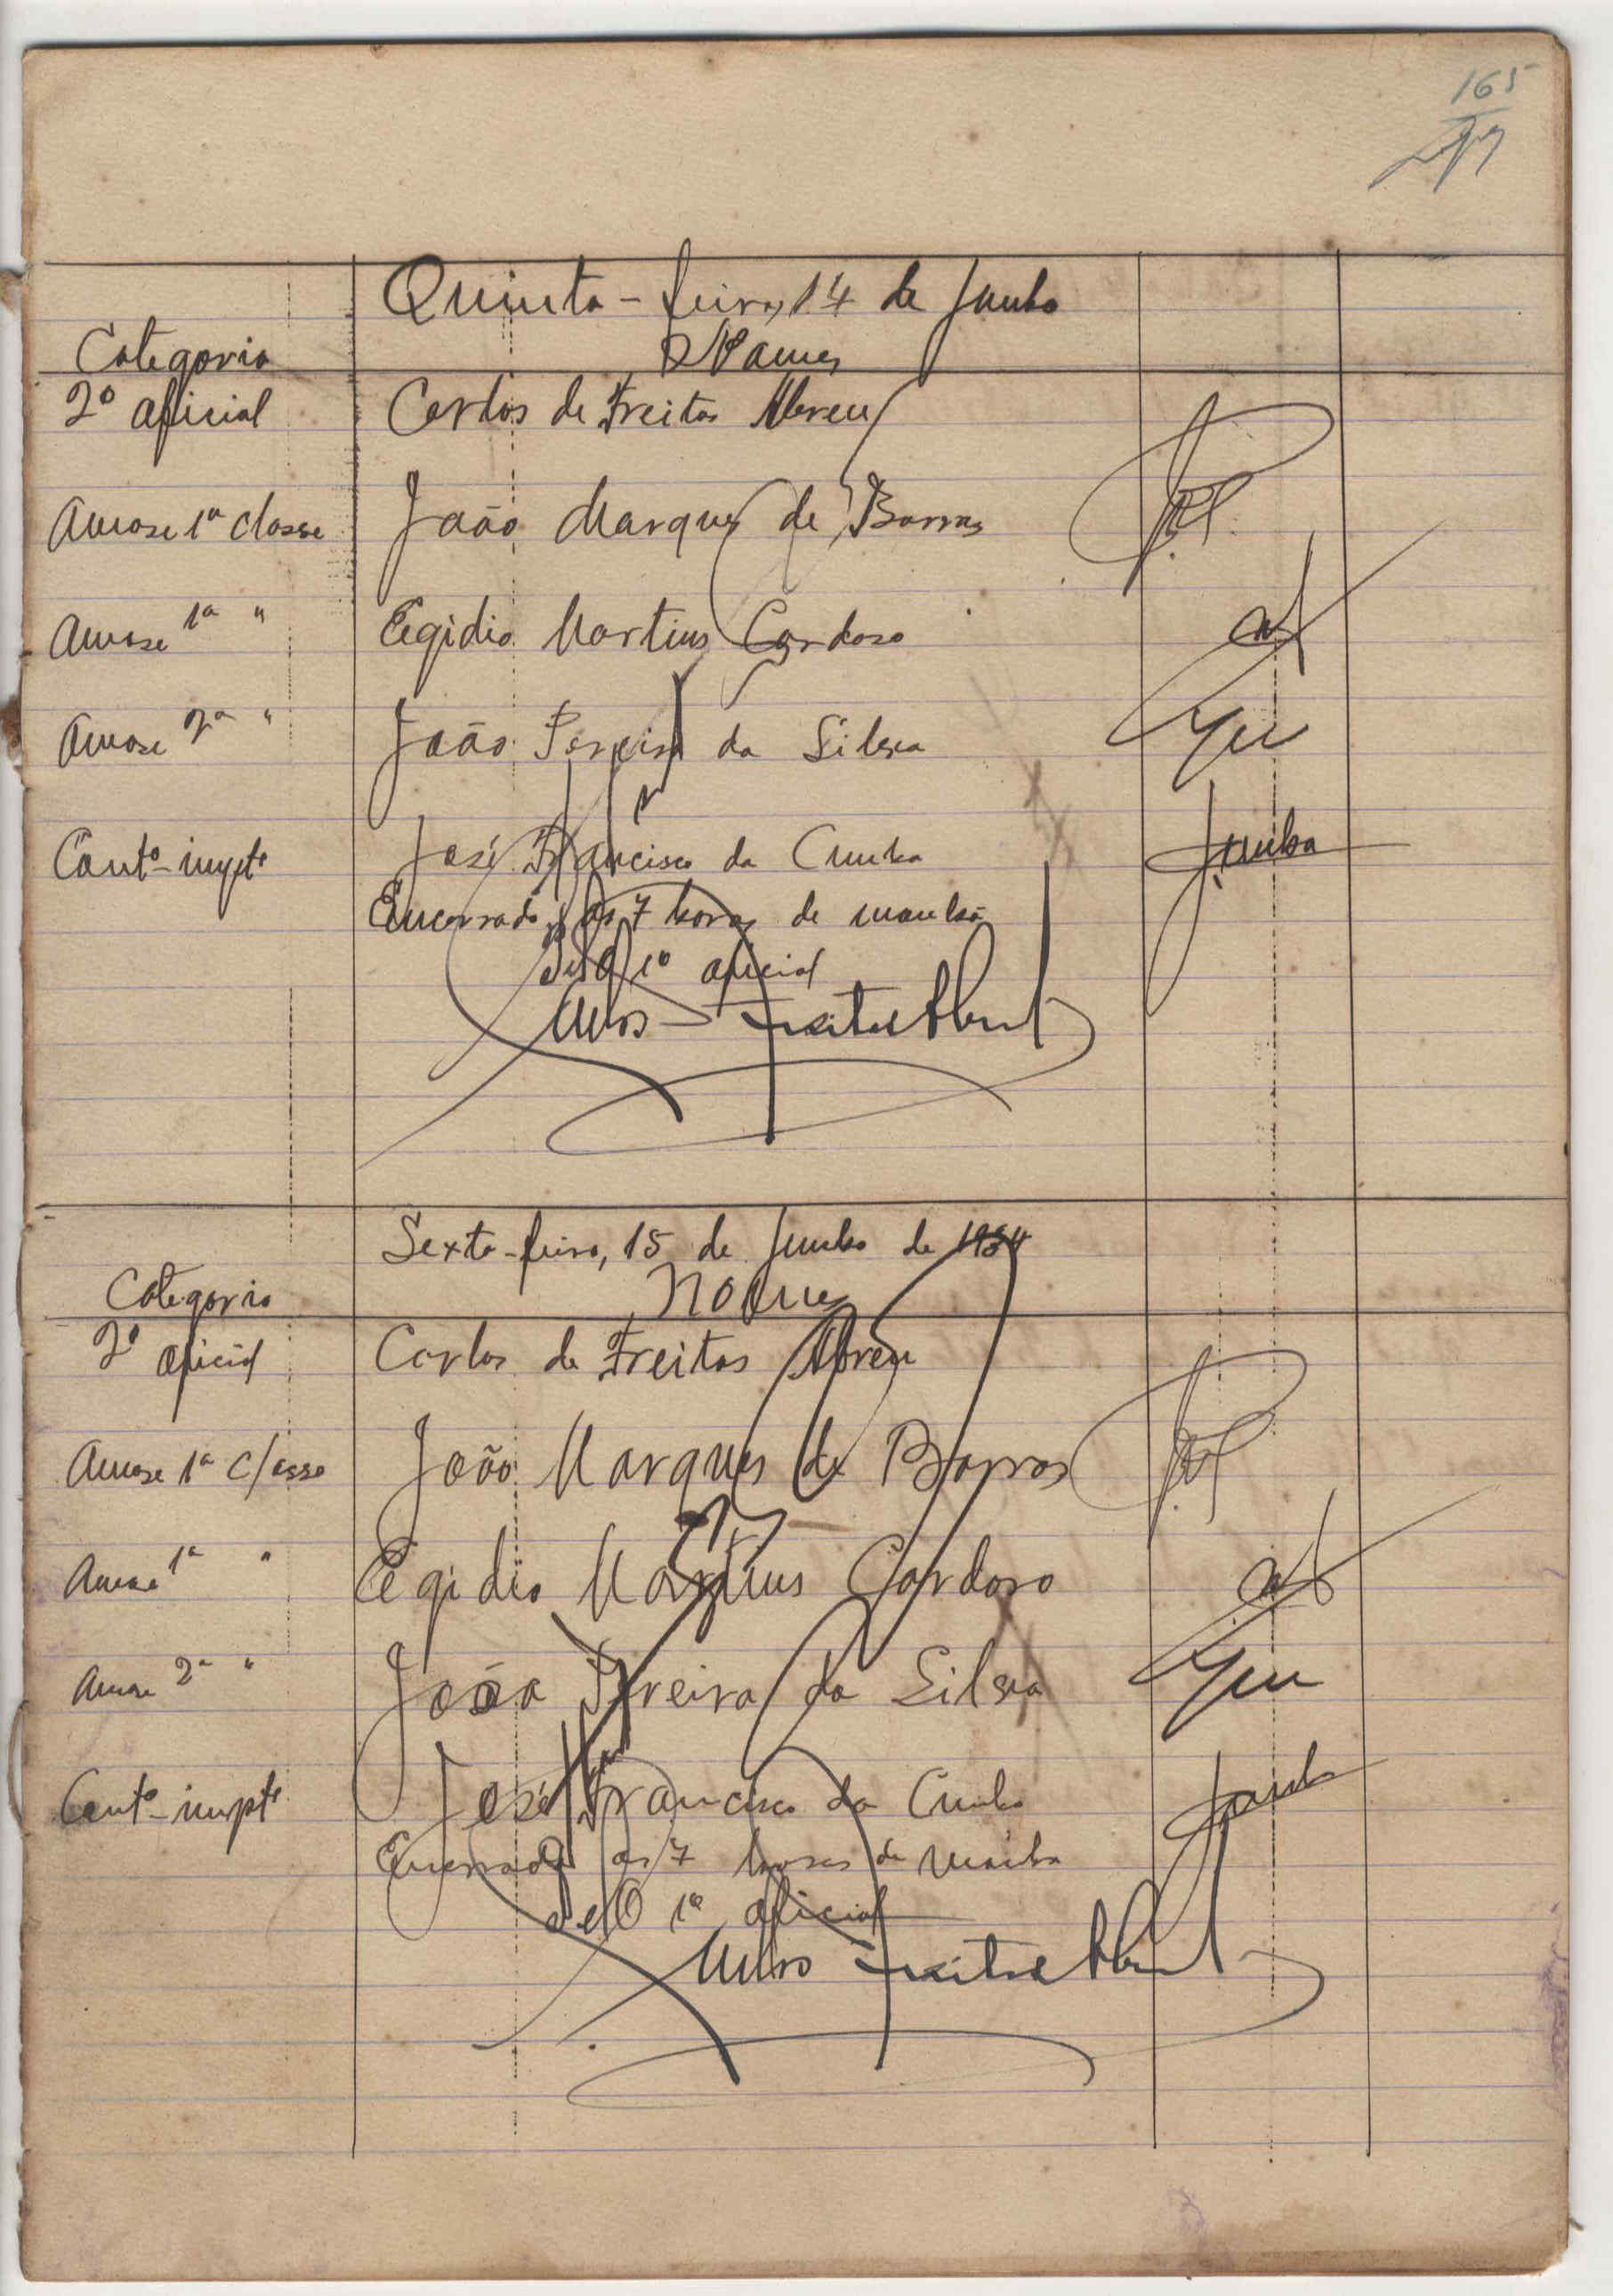 165
Quinta-feira, 14 de Junho
Categoria Nomes
2º oficial Carlos de Freitas Abreu
Amose 1ª classe João Marques de Barros
Amose 1ª " Egidio Martins Cardoso
Amose 2ª " João Pereira da Silva
Contº-impte José Francisco da Cunha Cunha
Encerrado às 7 horas de manhã
O 1º oficial
Carlos Freitas Abreu
Sexta-feira, 15 de Junho de 1934
Categoria Nomes
2º oficial Carlos de Freitas Abreu
Amose 1ª classe João Marques de Barros
Amose 1ª " Egidio Martins Cardoso
Amose 2ª " João Pereira da Silva
Contº-impte José Francisco da Cunha Cunha
Encerrado às 7 horas de manha
O 1º oficial
Carlos Freitas Abreu